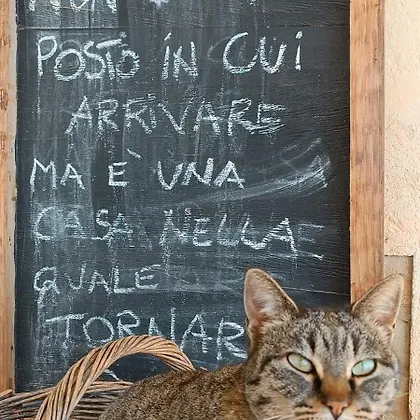 NON
POSTO IN CUI
ARRIVARE
MA È UNA
CASA NELLA
QUALE
TORNAR